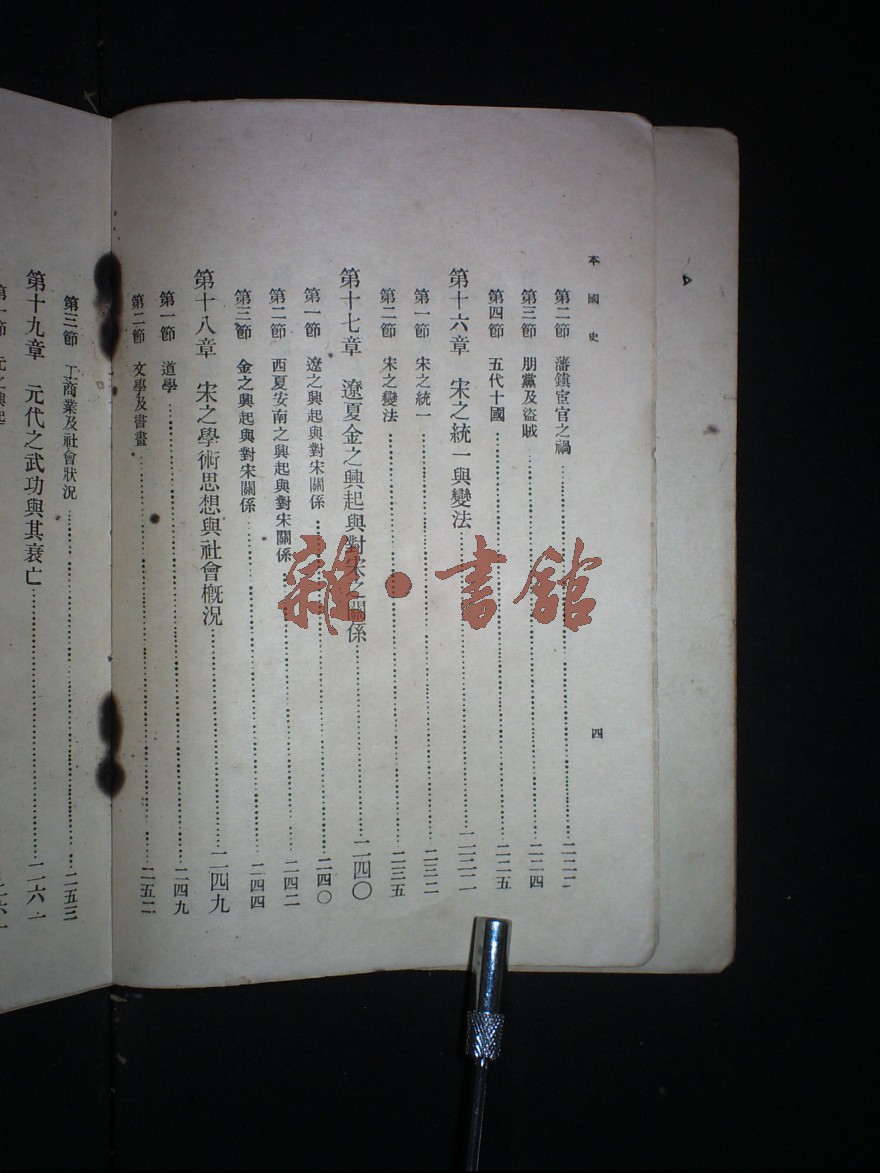 本國史
四
第二節 藩鎮宦官之禍……二二二
第三節 朋黨及盜賊……二二四
第四節 五代十國……二二五
第十六章 宋之統一與變法……二三二
第一節 宋之統一……二三二
第二節 宋之變法……二三五
第十七章 遼夏金之興起與對宋之關係……二四〇
第一節 遼之興起與對宋關係……二四〇
第二節 西夏安南之興起與對宋關係……二四二
第三節 金之興起與對宋關係……二四四
第十八章 宋之學術思想與社會概況……二四九
第一節 道學……二四九
第二節 文學及書畫……二五二
第三節 工商業及社會狀況……二五三
第十九章 元代之武功與其衰亡……二六一
第一節 元之興起
雜·書館